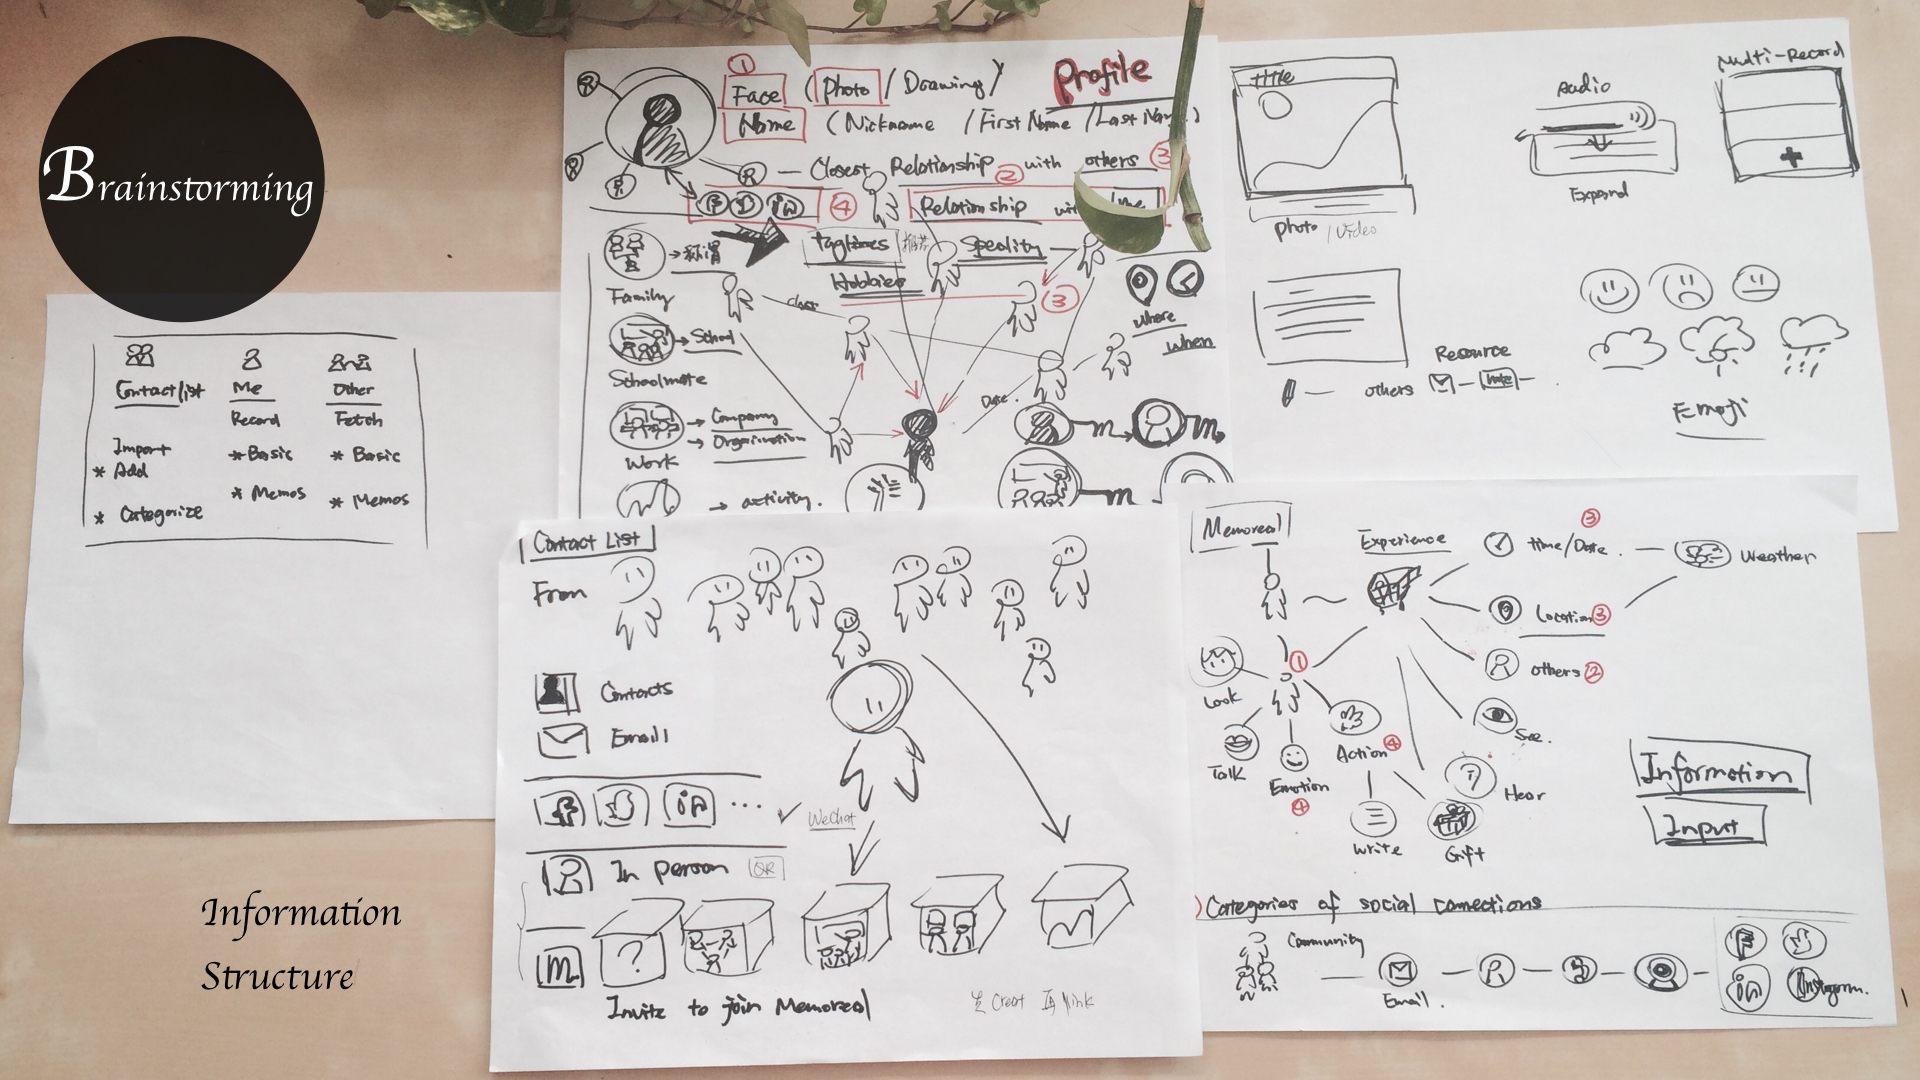 Brainstorming
Information
Structure
Contact list
Me
Other
Record
Fetch
Import
* Add
* Basic
* Basic
* Categorize
* Memos
* Memos
Profile
① Face (Photo / Drawing)
Name (Nickname / First Name / Last Name)
Closest Relationship ② with others ③
④ Relationship with me
Taglines
Speality
Hobbies
Family
→ 称谓
close
③
where
when
→ School
Schoolmate
Date.
→ Company
→ Orgnination
Work
→ activity.
m
m
m
Title
photo / Video
Audio
Expand
Multi-Record
others
Resource
note
Emoji
Contact List
From
Contacts
Email
in
...
WeChat
In person
QR
m
?
Invite to join Memoreal
先 Creat 再 link
Memoreal
Experience
Time/Date. ③
Weather
Location ③
others ②
See.
Hear
Gift
Write
Action ④
Emotion ④
Talk
Look
①
Information
Input
Categories of social connections
Community
Email.
in
Instagram.